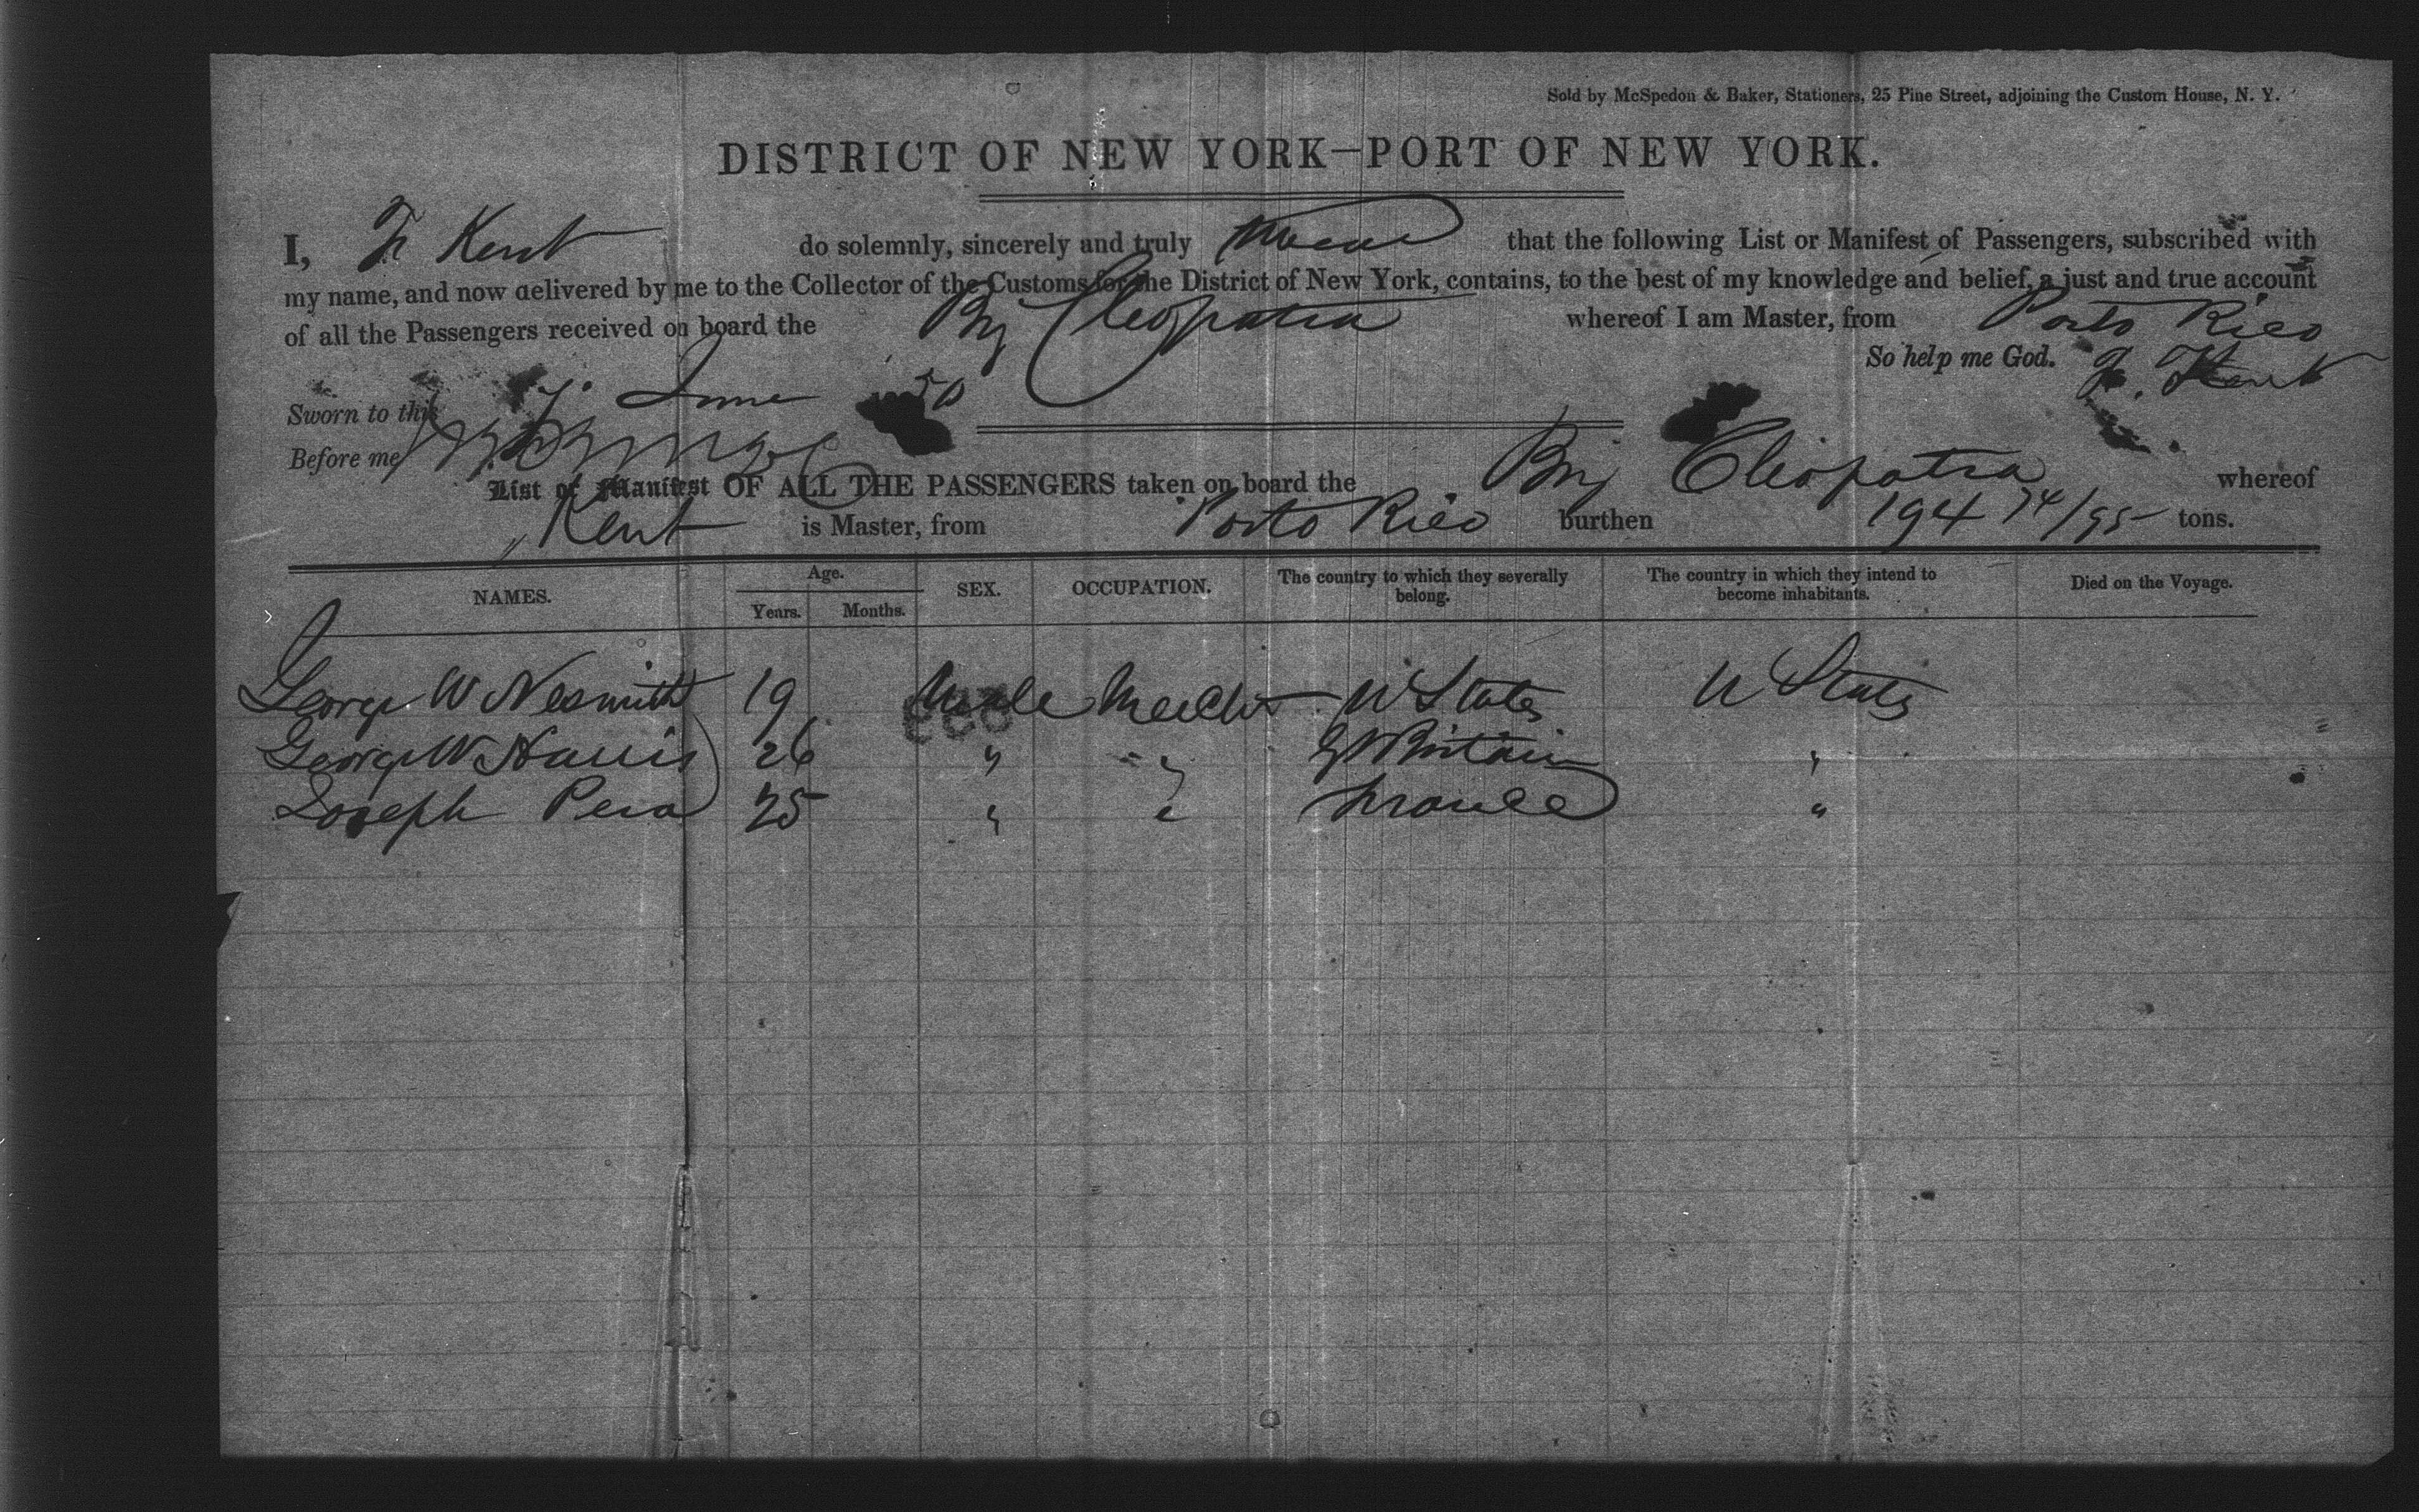 Sold by McSpedon & Baker, Stationers, 25 Pine Street, adjoining the Custom House, N. Y.
DISTRICT OF NEW YORK—PORT OF NEW YORK.
I, F Kent do solemnly, sincerely and truly swear that the following List or Manifest of Passengers, subscribed with
my name, and now delivered by me to the Collector of the Customs for the District of New York, contains, to the best of my knowledge and belief, a just and true account
of all the Passengers received on board the Brig Cleopatra whereof I am Master, from Porto Rico
So help me God. F. Kent
Sworn to this 7 June 50
Before me
List or Manifest OF ALL THE PASSENGERS taken on board the Brig Cleopatra whereof
Kent is Master, from Porto Rico burthen 194 74/95 tons.
NAMES. Age. Years. Months. SEX. OCCUPATION. The country to which they severally belong. The country in which they intend to become inhabitants. Died on the Voyage.
George W Nesmith 19 Male Mercht U States U States
George W Harris 26 " " Gt Britain "
Joseph Pera 25 " " France "